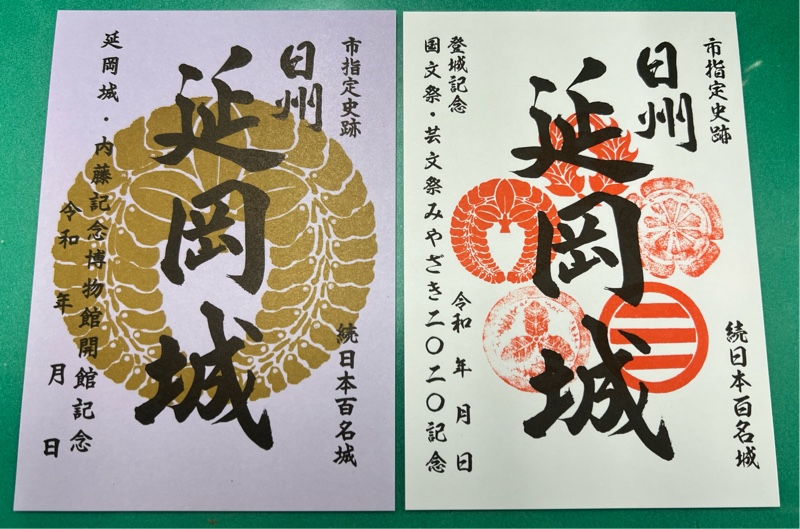 市指定史跡
続日本百名城
日州
延岡城
延岡城・内藤記念博物館開館記念
令和 年 月 日
市指定史跡
続日本百名城
日州
延岡城
登城記念
国文祭・芸文祭みやざき二〇二〇記念
令和 年 月 日